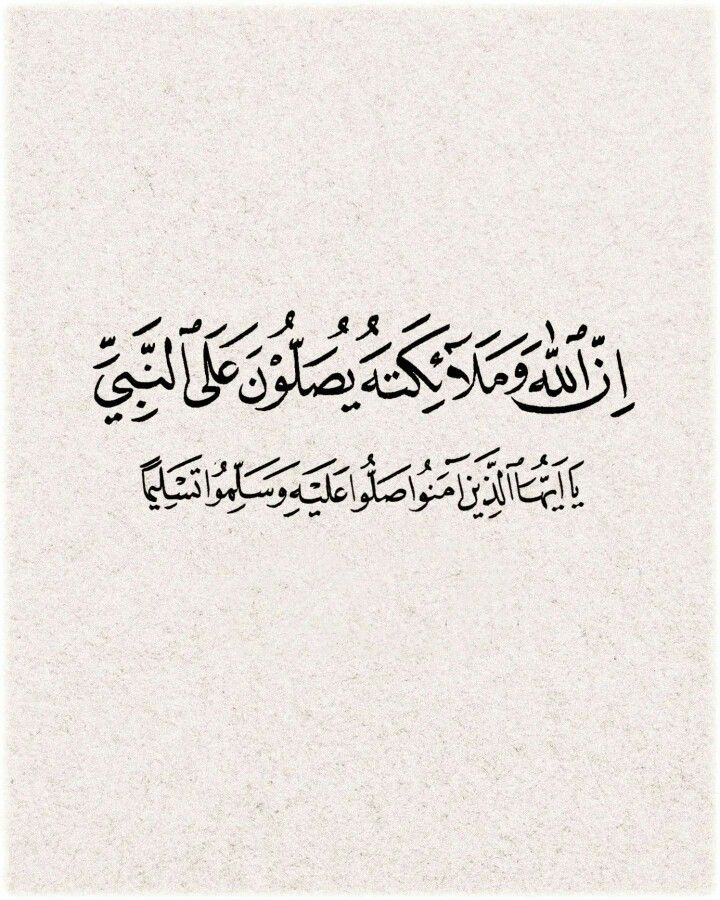 اِنَّ ٱللّٰهَ وَمَلَآئِكَتَهُ يُصَلُّوْنَ عَلَى ٱلنَّبِيِّ
يَا اَيُّهَا ٱلَّذِينَ آمَنُوا صَلُّوا عَلَيْهِ وَسَلِّمُوا تَسْلِيمًا